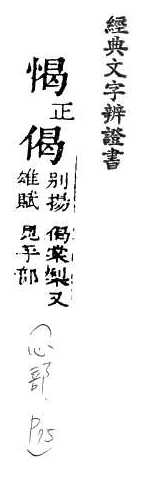 經典文字辨證書
愒正偈
別揚 偈棠棃又
雄賦 見手部
(心部. P75)